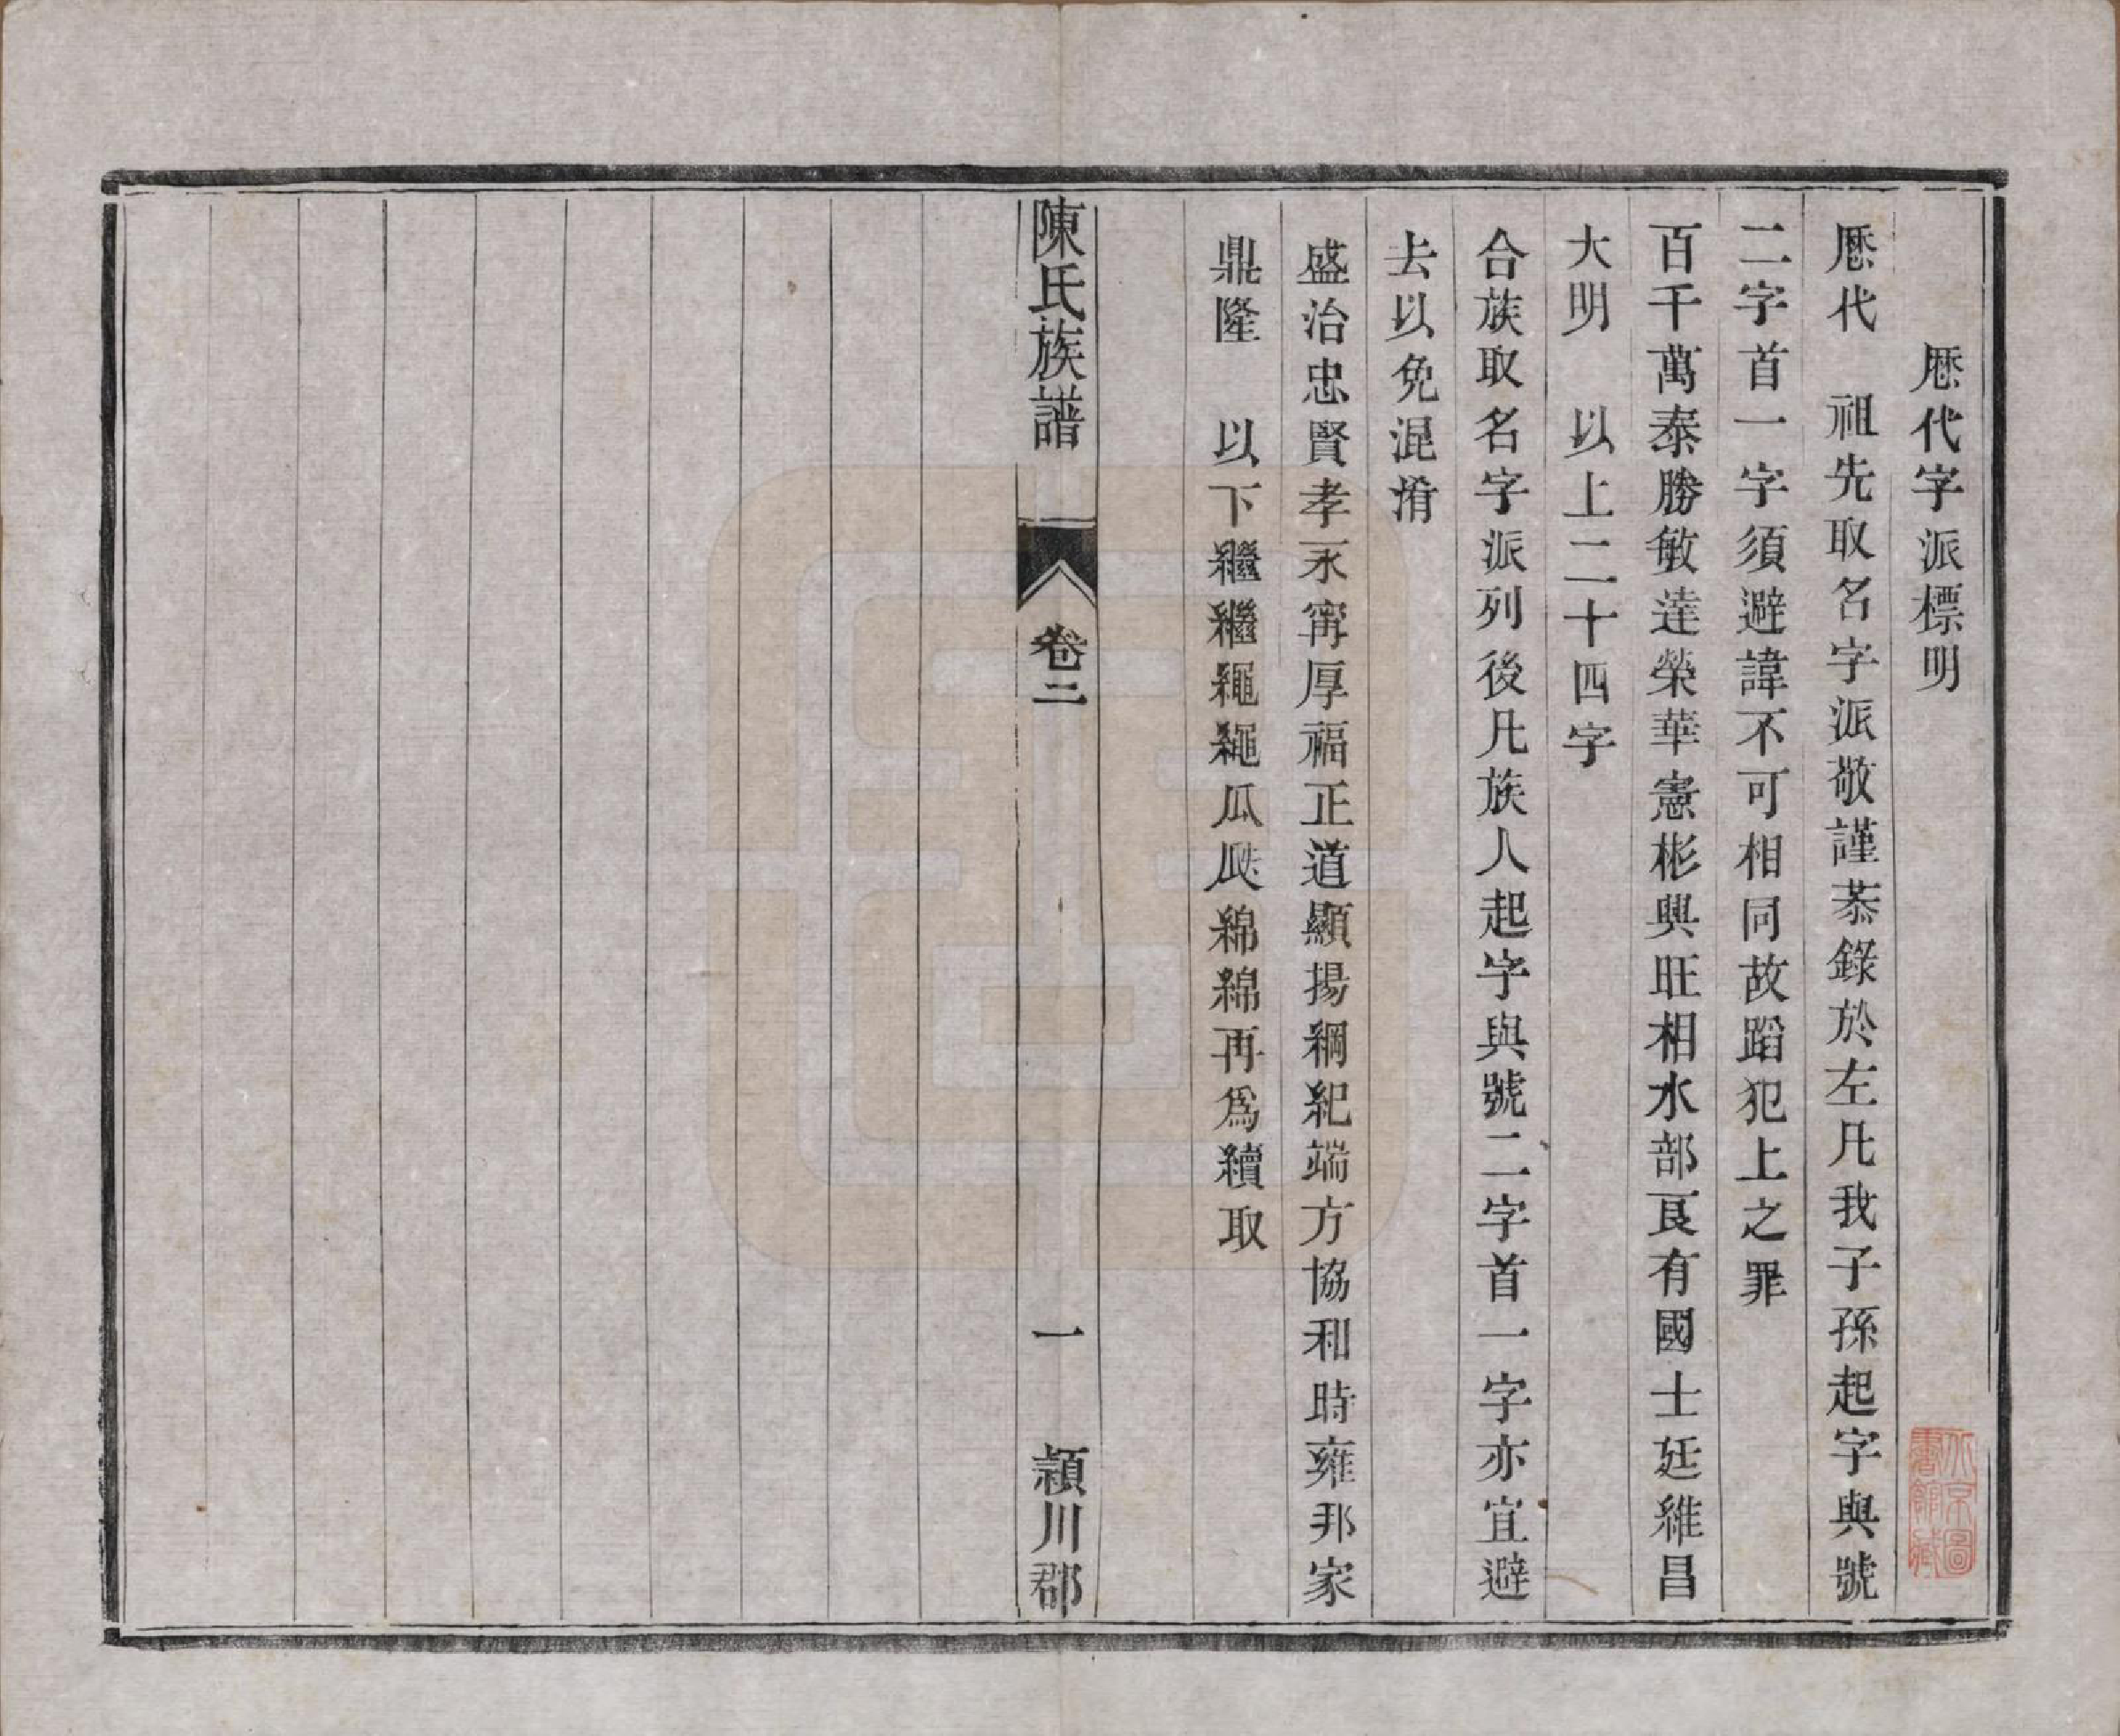 厯代字派標明
厯代 祖先取名字派敬謹恭錄於左凡我子孫起字與號
二字首一字須避諱不可相同故蹈犯上之罪
百千萬泰勝敏達榮華憲彬興旺相水部良有國士廷維昌
大明 以上二十四字
合族取名字派列後凡族人起字與號二字首一字亦宜避
去以免混淆
盛治忠賢孝永甯厚福正道顯揚綱紀端方協和時雍邦家
鼎隆 以下繼繼繩繩瓜瓞綿綿再爲續取
陳氏族譜 卷二 一 潁川郡
北京圖
書館藏